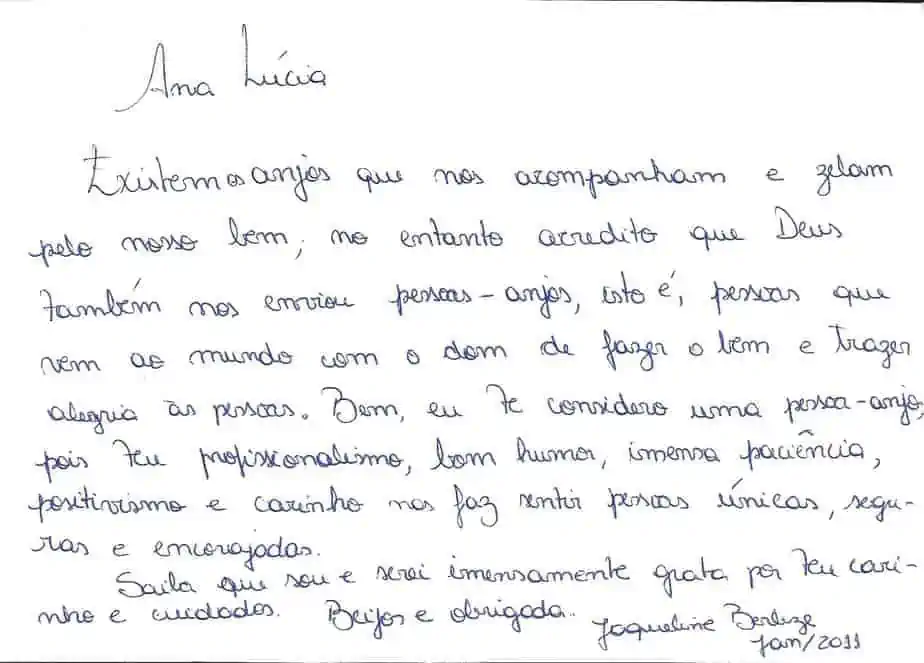 Ana Lúcia
Existem os anjos que nos acompanham e zelam
pelo nosso bem, no entanto acredito que Deus
também nos enviou pessoas-anjos, isto é, pessoas que
vem ao mundo com o dom de fazer o bem e trazer
alegria às pessoas. Bem, eu te considero uma pessoa-anjo,
pois teu profissionalismo, bom humor, imensa paciência,
positivismo e carinho nos faz sentir pessoas únicas, segu-
ras e encorajadas.
Saiba que sou e serei imensamente grata por teu cari-
nho e cuidados. Beijos e obrigada.
Jaqueline
Jan/2011